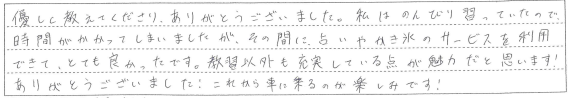 優しく教えてくださり、ありがとうございました。私はのんびり習っていたので、
時間がかかってしまいましたが、その間に、占いやかき氷のサービスを利用
できて、とても良かったです。教習以外も充実している点が魅力だと思います!
ありがとうございました!これから車に乗るのが楽しみです!